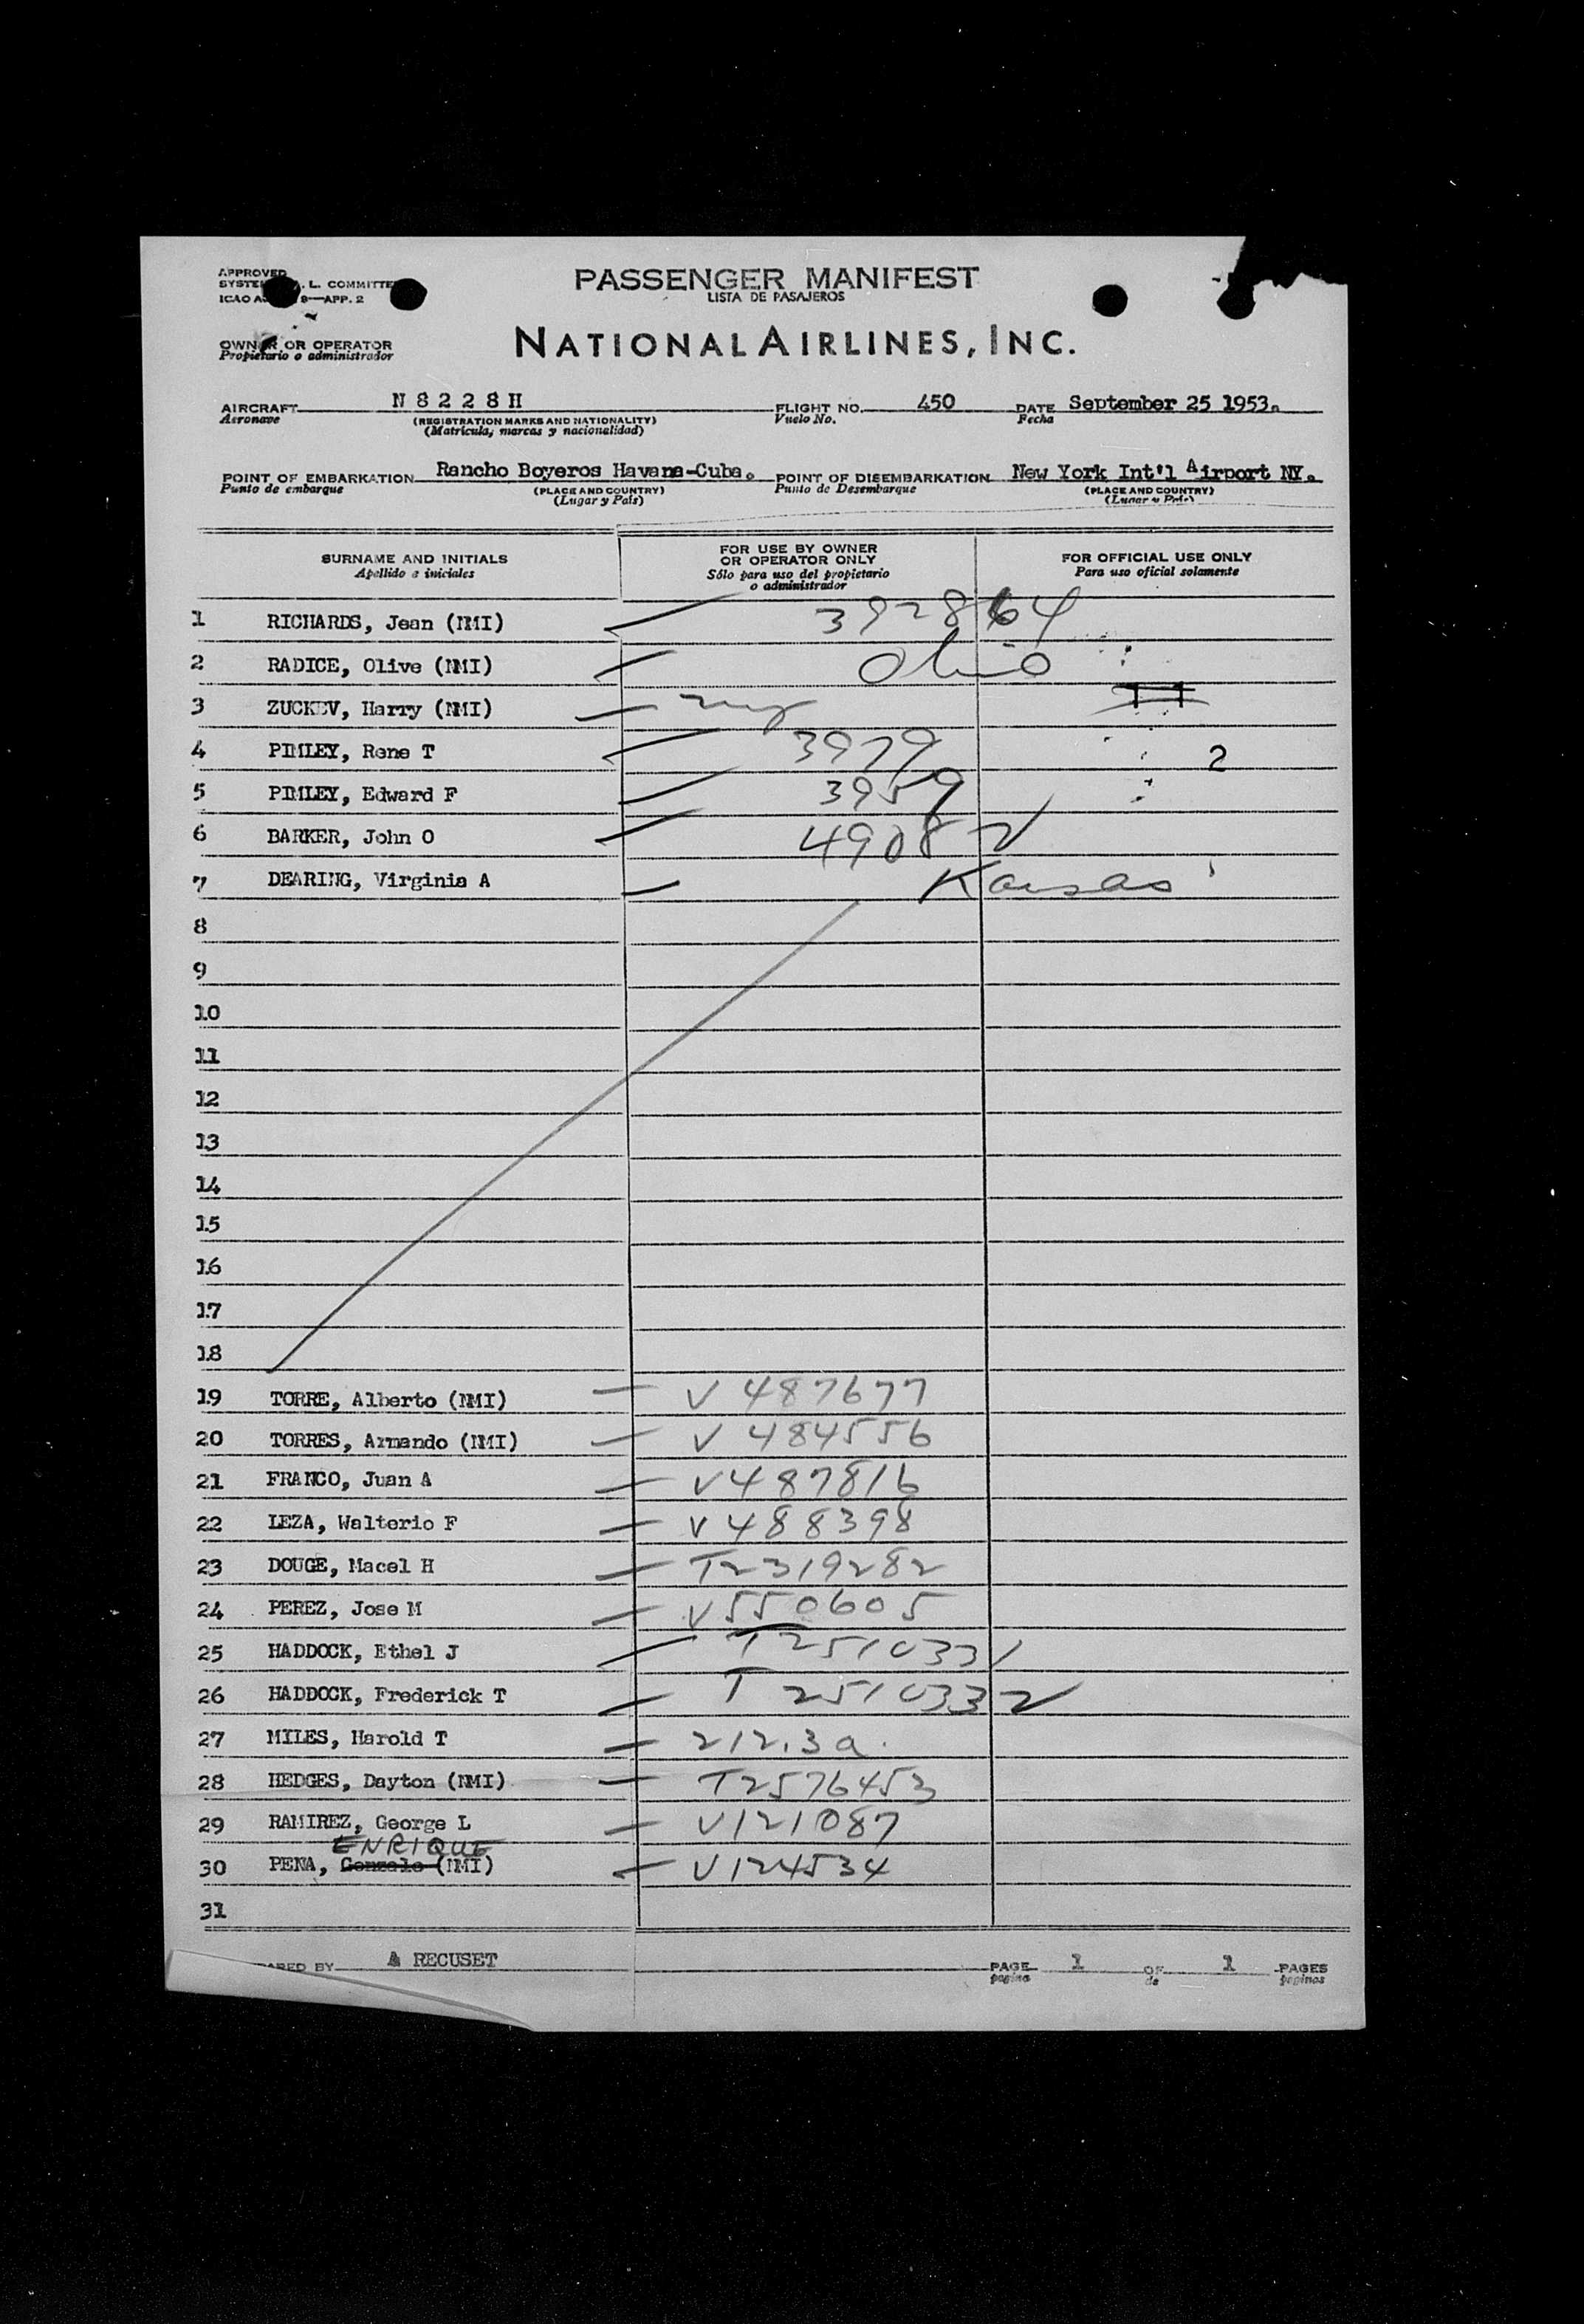 APPROVED
PASSENGER MANIFEST
L. COMMITTE
LISTA DE PASAJEROS
ICAO 9—APP. 2
OWNER OR OPERATOR
Propietario o administrador
NATIONAL AIRLINES, INC.
AIRCRAFT N 8 2 2 8 H FLIGHT NO. 450 DATE September 25 1953.
Aeronave (REGISTRATION MARKS AND NATIONALITY) Vuelo No. Fecha
(Matrícula, marcas y nacionalidad)
POINT OF EMBARKATION Rancho Boyeros Havana-Cuba. POINT OF DISEMBARKATION New York Int'l Airport NY.
Punto de embarque (PLACE AND COUNTRY) Punto de Desembarque (PLACE AND COUNTRY)
(Lugar y País) (Lugar y País)
SURNAME AND INITIALS FOR USE BY OWNER OR OPERATOR ONLY FOR OFFICIAL USE ONLY
Apellido e iniciales Sólo para uso del propietario o administrador Para uso oficial solamente
1 RICHARDS, Jean (NMI) 392864
2 RADICE, Olive (NMI) Ohio
3 ZUCKEV, Harry (NMI) ny 11
4 PIMLEY, Rene T 3979 2
5 PIMLEY, Edward F 3959
6 BARKER, John O 4908 ✓
7 DEARING, Virginia A Kansas
8
9
10
11
12
13
14
15
16
17
18
19 TORRE, Alberto (NMI) V 487677
20 TORRES, Armando (NMI) V 484556
21 FRANCO, Juan A V487816
22 LEZA, Walterio F V488398
23 DOUGE, Macel H T2319282
24 PEREZ, Jose M V550605
25 HADDOCK, Ethel J T2510331
26 HADDOCK, Frederick T T 2510332
27 MILES, Harold T 212.3a.
28 HEDGES, Dayton (NMI) T2576453
29 RAMIREZ, George L V121087
ENRIQUE
30 PENA, Gonzalo (NMI) V124534
31
ARED BY A RECUSET PAGE 1 OF 1 PAGES
pagina de paginas